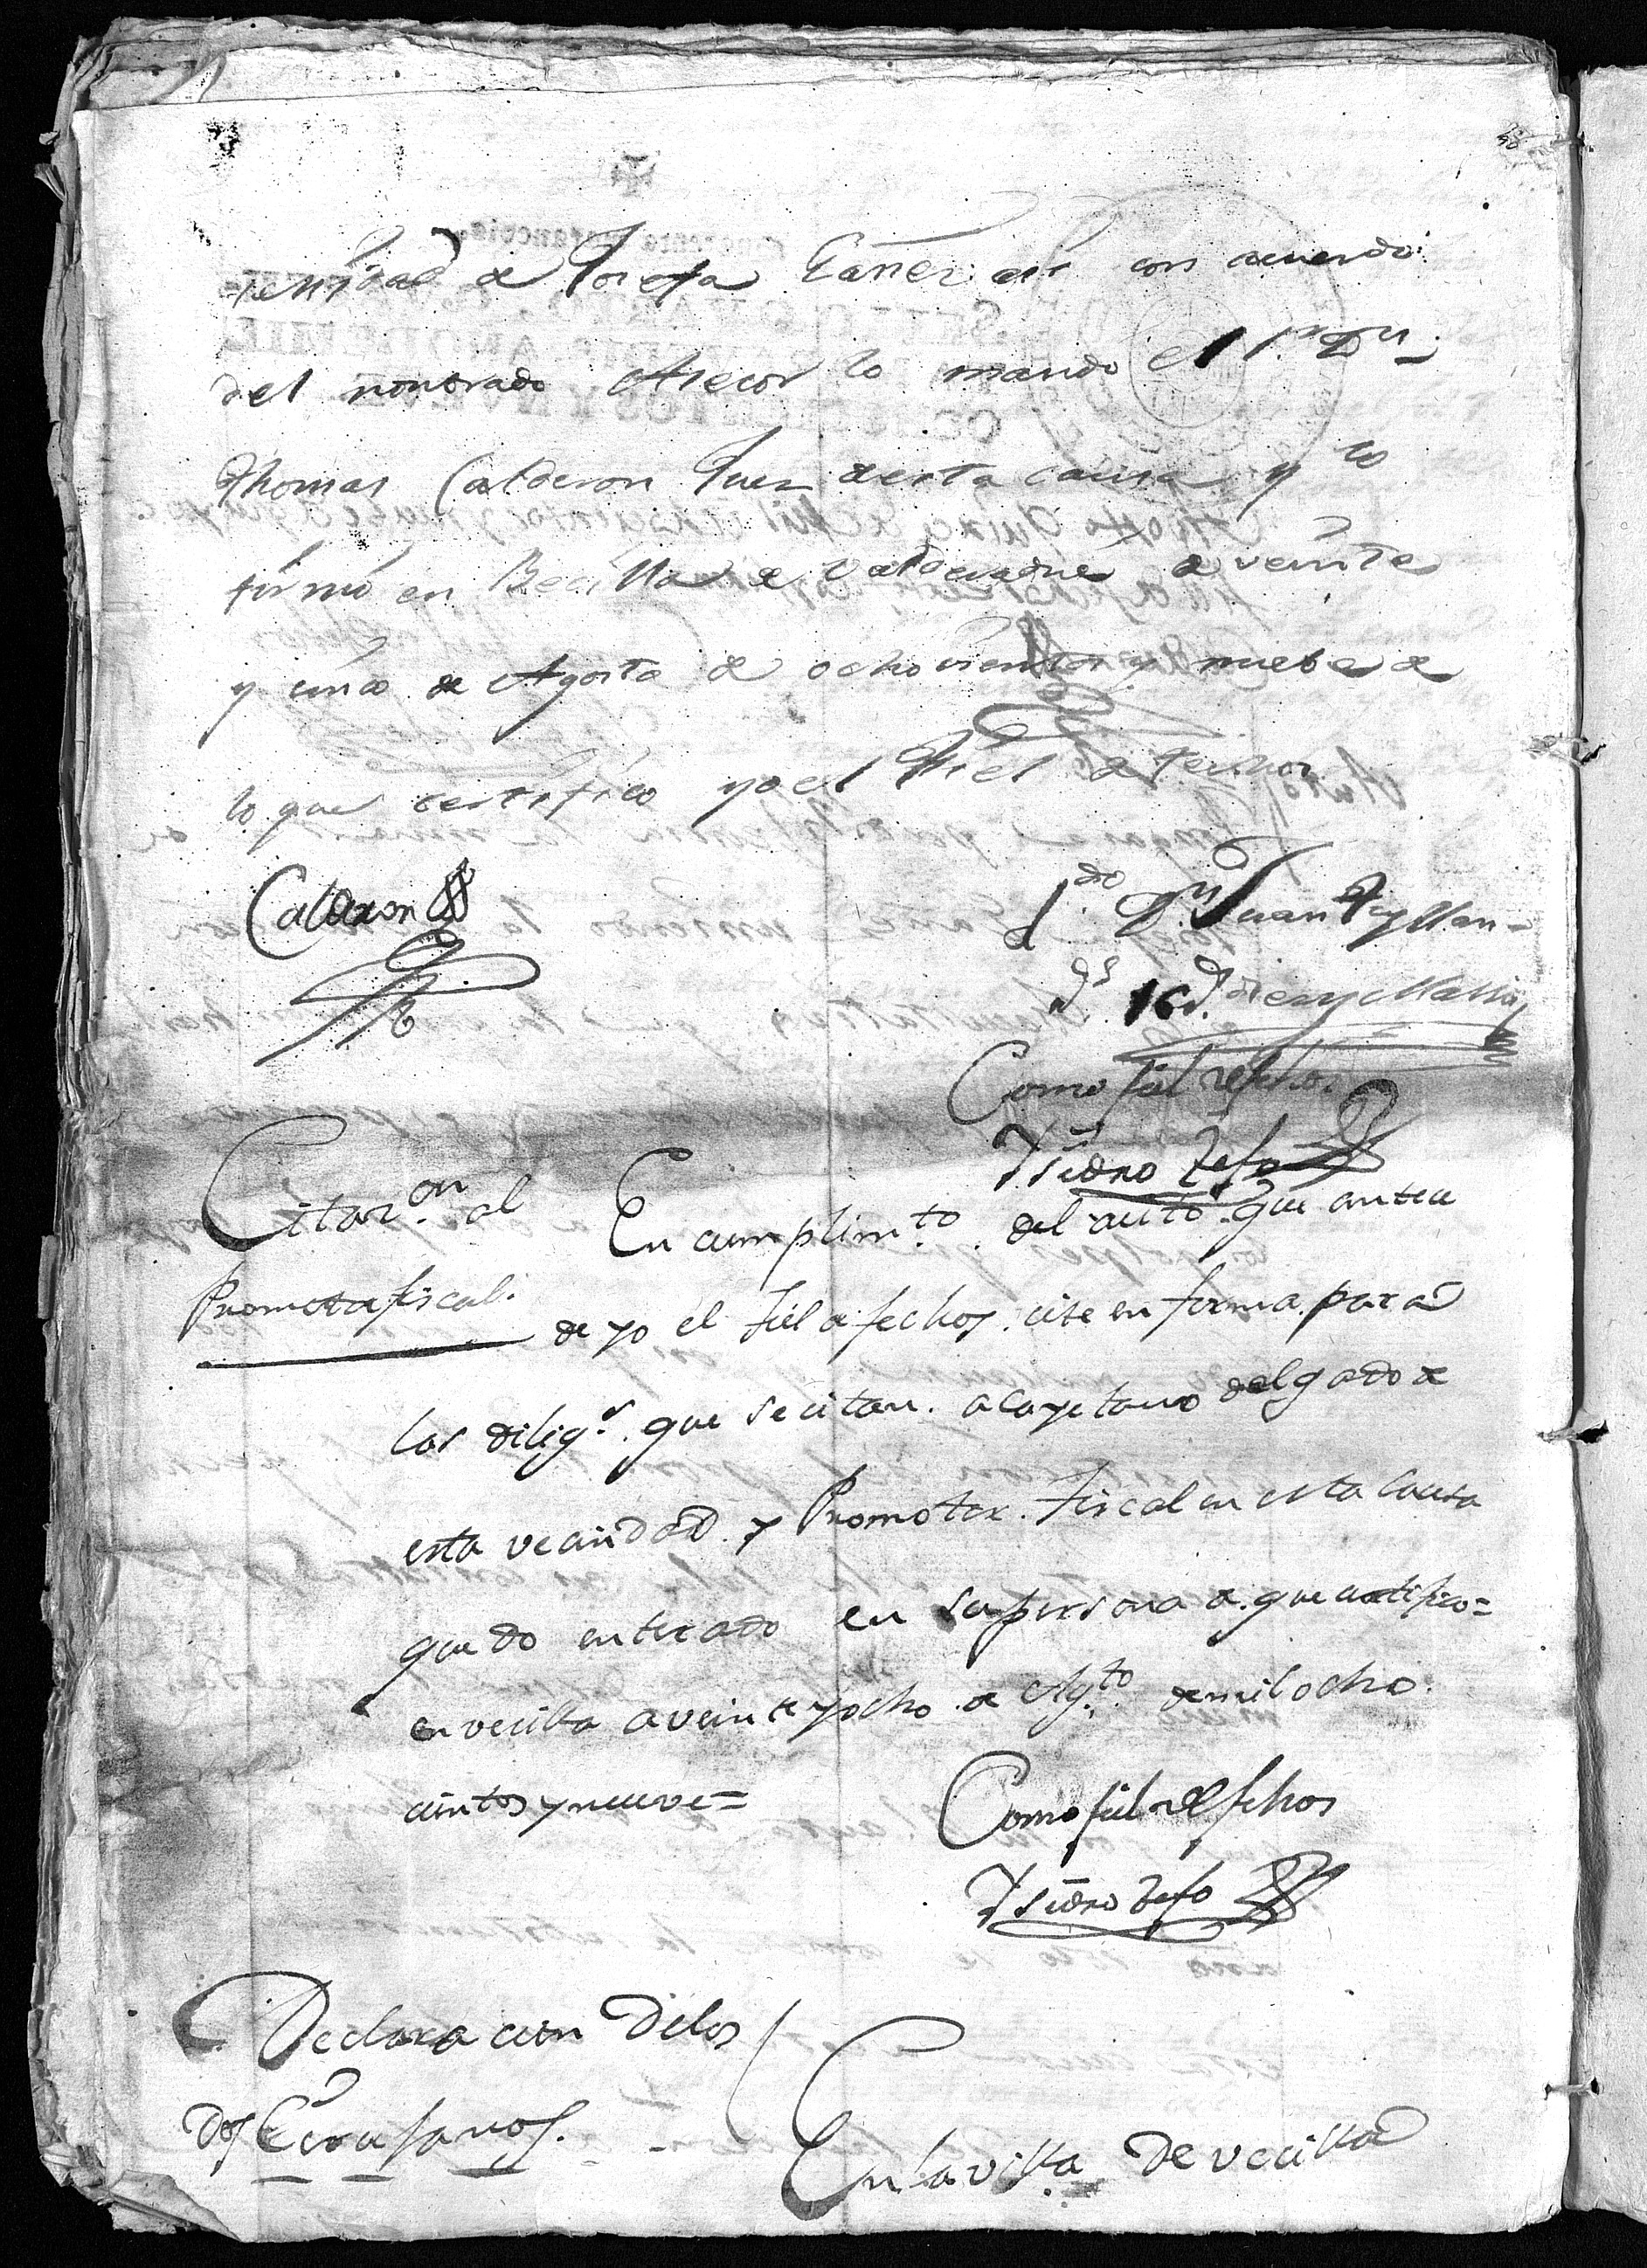 de Josefa Eañez assi con acuerdo
del nonbrado Asecor lo mando el Sr Dn
Thomas Calderon Juez desta causa y lo
firmo en Becilla de Valderadue a veinte
y cinco de Agosto de ochocientos y nuebe de
lo que certifico yo el Fiel de fechos
Calderon
Ldo Dn Juan
Ds 16 Rs
Como fiel de fechos
Ysidro Zefo
Citazon al
Promotor fiscal.
En cumplimto del auto que antece
de yo el fiel a fechos cite en forma para
las diligs que se citan a Cayetano delgado de
esta vecindad y Promotor Fiscal en esta Causa
quedo enterado en su persona de que certifico=
en vecilla a veinte y ocho de Agto de mil ocho
cientos y nueve=
Como fiel de fechos
Ysidro Zefo
Declaracion De los
Dos Cirujanos.
En la villa De vecilla